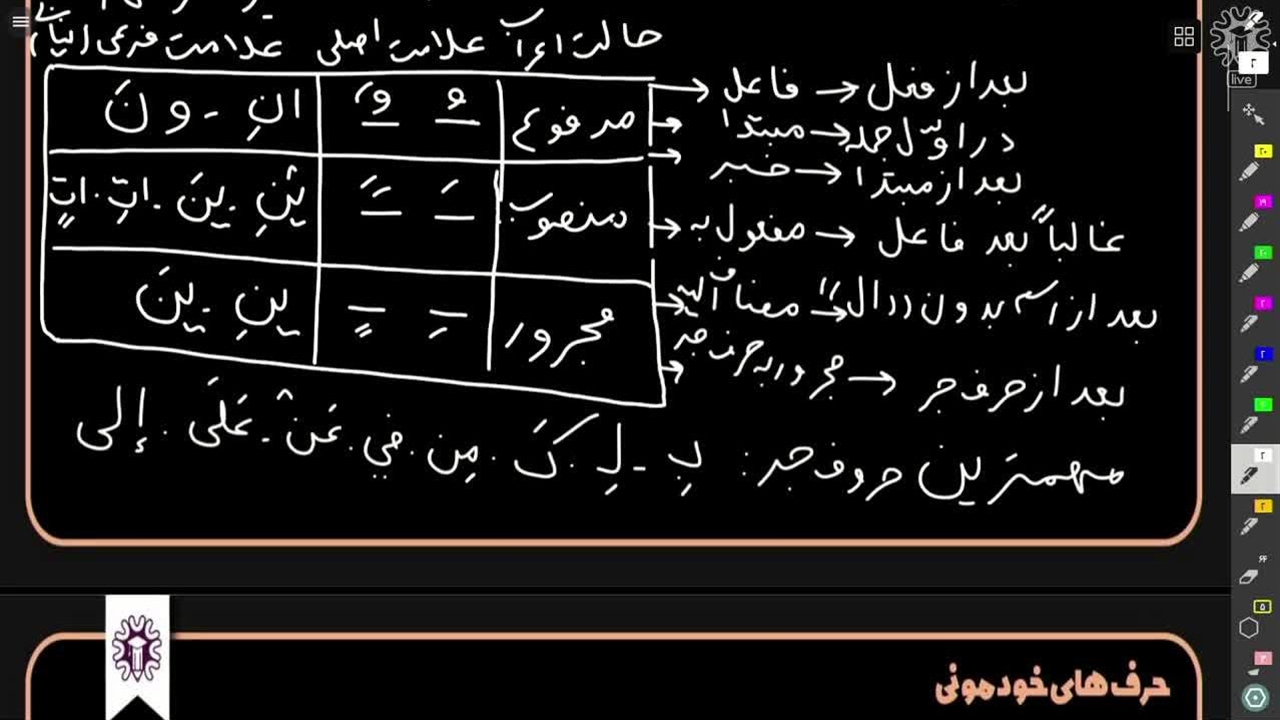 حالت اعراب علامت اصلی علامت فرعی (نیابی)
بعد از فعل → فاعل
در اوّل جمله → مبتدا
بعد از مبتدا → خبر
مرفوع ـُ ـٌ انِ - ونَ
غالباً بعد فاعل → مفعول به
منصوب ـَ ـً یْنِ - ینَ - اتِ - اتٍ
بعد از اسم بدون "ال" → مضاف الیه
بعد از حرف جر → مجرور به حرف جر
مجرور ـِ ـٍ ینِ - ینَ
مهمترین حروف جر: بِ - لِ . کَ . مِن . في . عَنْ - عَلَی . إلی
حرف های خودمونی
live